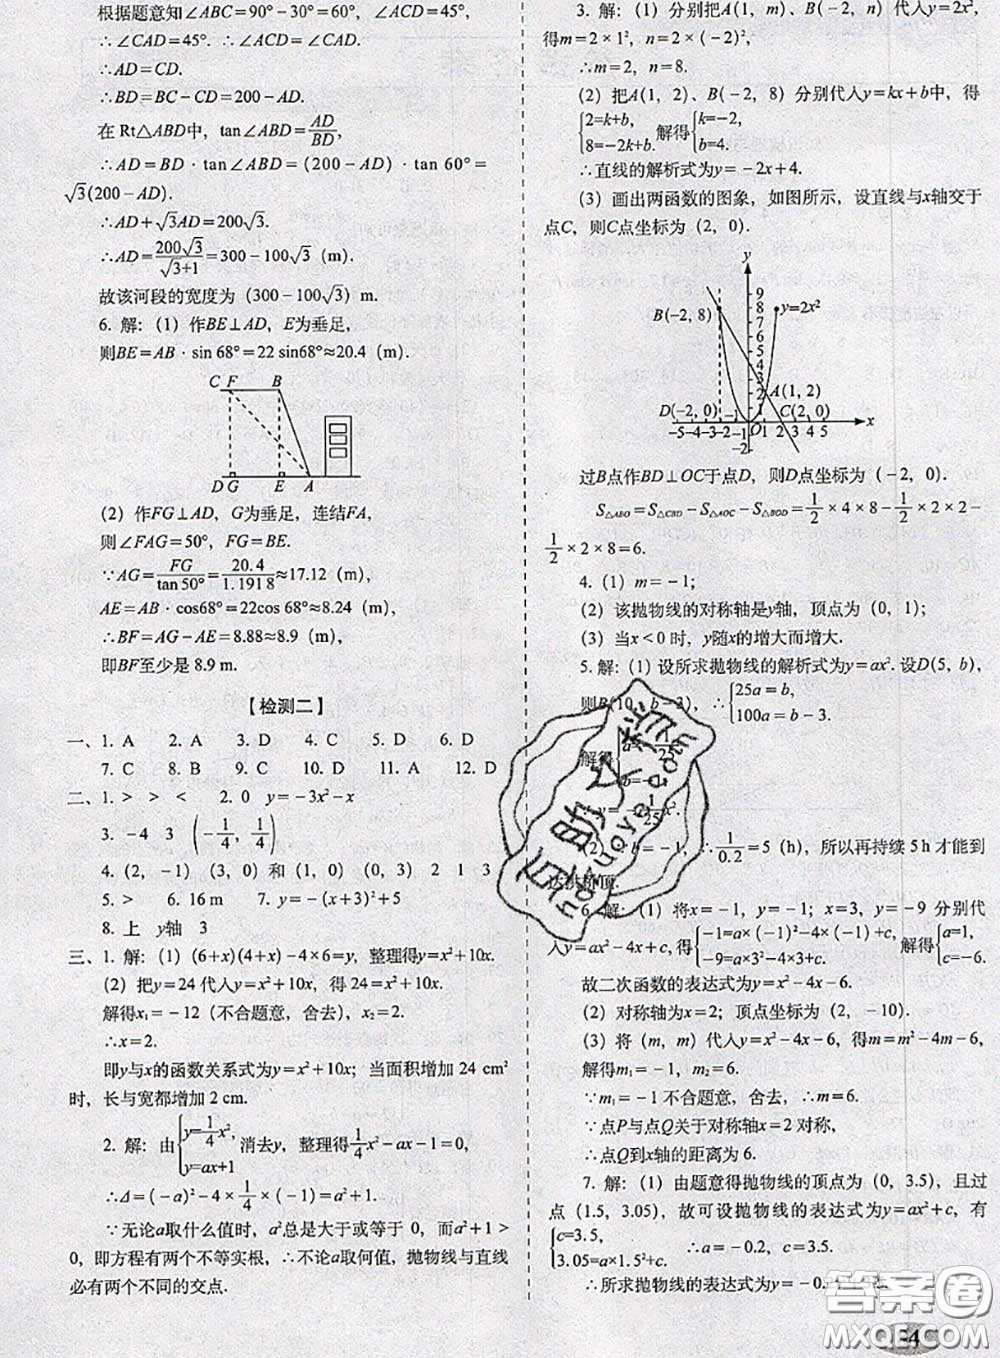 根据题意知∠ABC=90°－30°=60°, ∠ACD=45°,
∴∠CAD=45°. ∴∠ACD=∠CAD=45°.
∴AD=CD.
∴BD=BC－CD=200－AD.
在 Rt△ABD中, tan∠ABD=AD/BD,
∴AD=BD · tan∠ABD=(200－AD) · tan 60°=
√3(200－AD).
∴AD+√3AD=200√3.
∴AD=200√3/(√3+1)=300－100√3 (m).
故该河段的宽度为 (300－100√3) m.
6. 解: (1) 作BE⊥AD, E为垂足,
则BE=AB · sin 68°=22 sin68°≈20.4 (m).
C F B
D G E A
(2) 作FG⊥AD, G为垂足, 连结FA,
则∠FAG=50°, FG=BE.
∵AG=FG/tan50°=20.4/1.1918≈17.12 (m),
AE=AB · cos68°=22cos 68°≈8.24 (m),
∴BF=AG－AE=8.88≈8.9 (m),
即BF至少是 8.9 m.
【检测二】
一、1. A 2. A 3. D 4. C 5. D 6. D
7. C 8. B 9. C 10. D 11. A 12. D
二、1. > > < 2. 0 y=－3x²－x
3. －4 3 (－1/4, 1/4)
4. (2, －1) (3, 0) 和 (1, 0) (0, 3) 2 1 3
5. > 6. 16 m 7. y=－(x+3)²+5
8. 上 y轴 3
三、1. 解: (1) (6+x)(4+x)－4×6=y, 整理得y=x²+10x.
(2) 把y=24 代入y=x²+10x, 得 24=x²+10x.
解得x₁=－12 (不合题意, 舍去), x₂=2.
∴x=2.
即y与x的函数关系式为y=x²+10x; 当面积增加 24 cm²
时, 长与宽都增加 2 cm.
2. 解: 由{y=1/4x², y=ax+1 消去y, 整理得1/4x²－ax－1=0,
∴Δ=(－a)²－4×1/4×(－1)=a²+1.
∵无论a取什么值时, a²总是大于或等于 0, 而a²+1>
0, 即方程有两个不等实根, ∴不论a取何值, 抛物线与直线
必有两个不同的交点.
3. 解: (1) 分别把A(1, m)、B(－2, n) 代入y=2x²,
得m=2×1², n=2×(－2)²,
∴m=2, n=8.
(2) 把A(1, 2)、B(－2, 8) 分别代入y=kx+b中, 得
{2=k+b, 8=－2k+b, 解得{k=－2, b=4.
∴直线的解析式为y=－2x+4.
(3) 画出两函数的图象, 如图所示, 设直线与x轴交于
点C, 则C点坐标为 (2, 0).
y
9
B(－2, 8) 8 y=2x²
7
6
5
4
3
2 A(1, 2)
D(－2, 0) 1 C(2, 0)
－5－4－3－2－1 O 1 2 3 4 5 x
－1
－2
过B点作BD⊥OC于点D, 则D点坐标为 (－2, 0).
S△ABO=S△CBD－S△AOC－S△BOD=1/2×4×8－1/2×2×2－
1/2×2×8=6.
4. (1) m=－1;
(2) 该抛物线的对称轴是y轴, 顶点为 (0, 1);
(3) 当x<0 时, y随x的增大而增大.
5. 解: (1) 设所求抛物线的解析式为y=ax². 设D(5, b),
则B(10, b－3), ∴{25a=b, 100a=b－3.
解得
∴y=－1/25x².
(2) ∵b=－1, ∴1/0.2=5 (h), 所以再持续 5 h 才能到
达拱桥顶.
6. 解: (1) 将x=－1, y=－1; x=3, y=－9 分别代
入y=ax²－4x+c, 得{－1=a×(－1)²－4×(－1)+c, －9=a×3²－4×3+c. 解得{a=1, c=－6.
故二次函数的表达式为y=x²－4x－6.
(2) 对称轴为x=2; 顶点坐标为 (2, －10).
(3) 将 (m, m) 代入y=x²－4x－6, 得m=m²－4m－6,
解得m₁=－1, m₂=6.
∵m₁=－1 不合题意, 舍去, ∴m=6.
∵点P与点Q关于对称轴x=2 对称,
∴点Q到x轴的距离为 6.
7. 解: (1) 由题意得抛物线的顶点为 (0, 3.5), 且过
点 (1.5, 3.05), 故可设抛物线的表达式为y=ax²+c, 有
{c=3.5, 3.05=a×1.5²+c. ∴a=－0.2, c=3.5.
∴所求抛物线的表达式为y=－0.2
答案圈
MXQE.COM